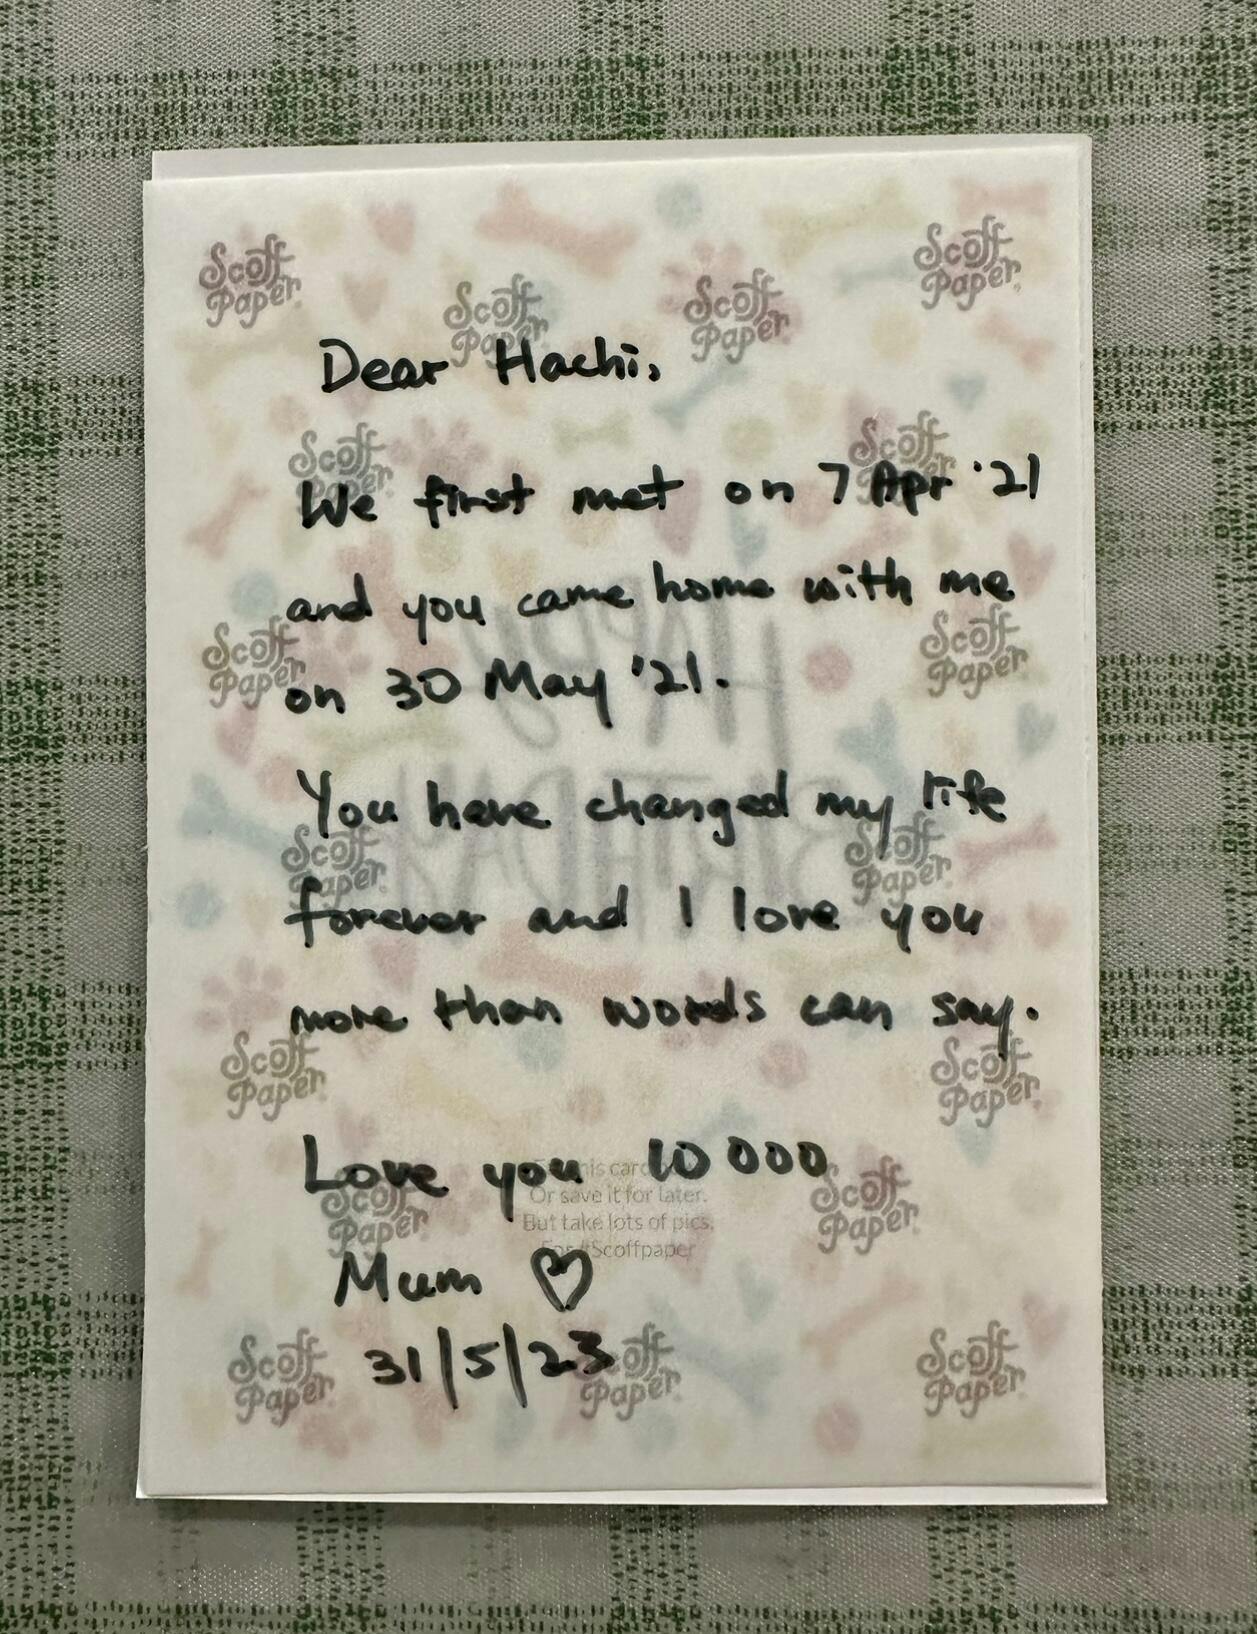 Scoff Paper
Scoff Paper
Scoff Paper
Scoff Paper
Dear Hachi,
Scoff Paper
Scoff Paper
We first met on 7 Apr '21
and you came home with me
Scoff Paper
Scoff Paper
on 30 May '21.
HAPPY
BIRTHDAY
You have changed my life
Scoff Paper
Scoff Paper
forever and I love you
more than words can say.
Scoff Paper
Scoff Paper
Love you 10 000
this card
Or save it for later.
But take lots of pics.
For #Scoffpaper
Scoff Paper
Scoff Paper
Mum ♡
31/5/23
Scoff Paper
Scoff Paper
Scoff Paper